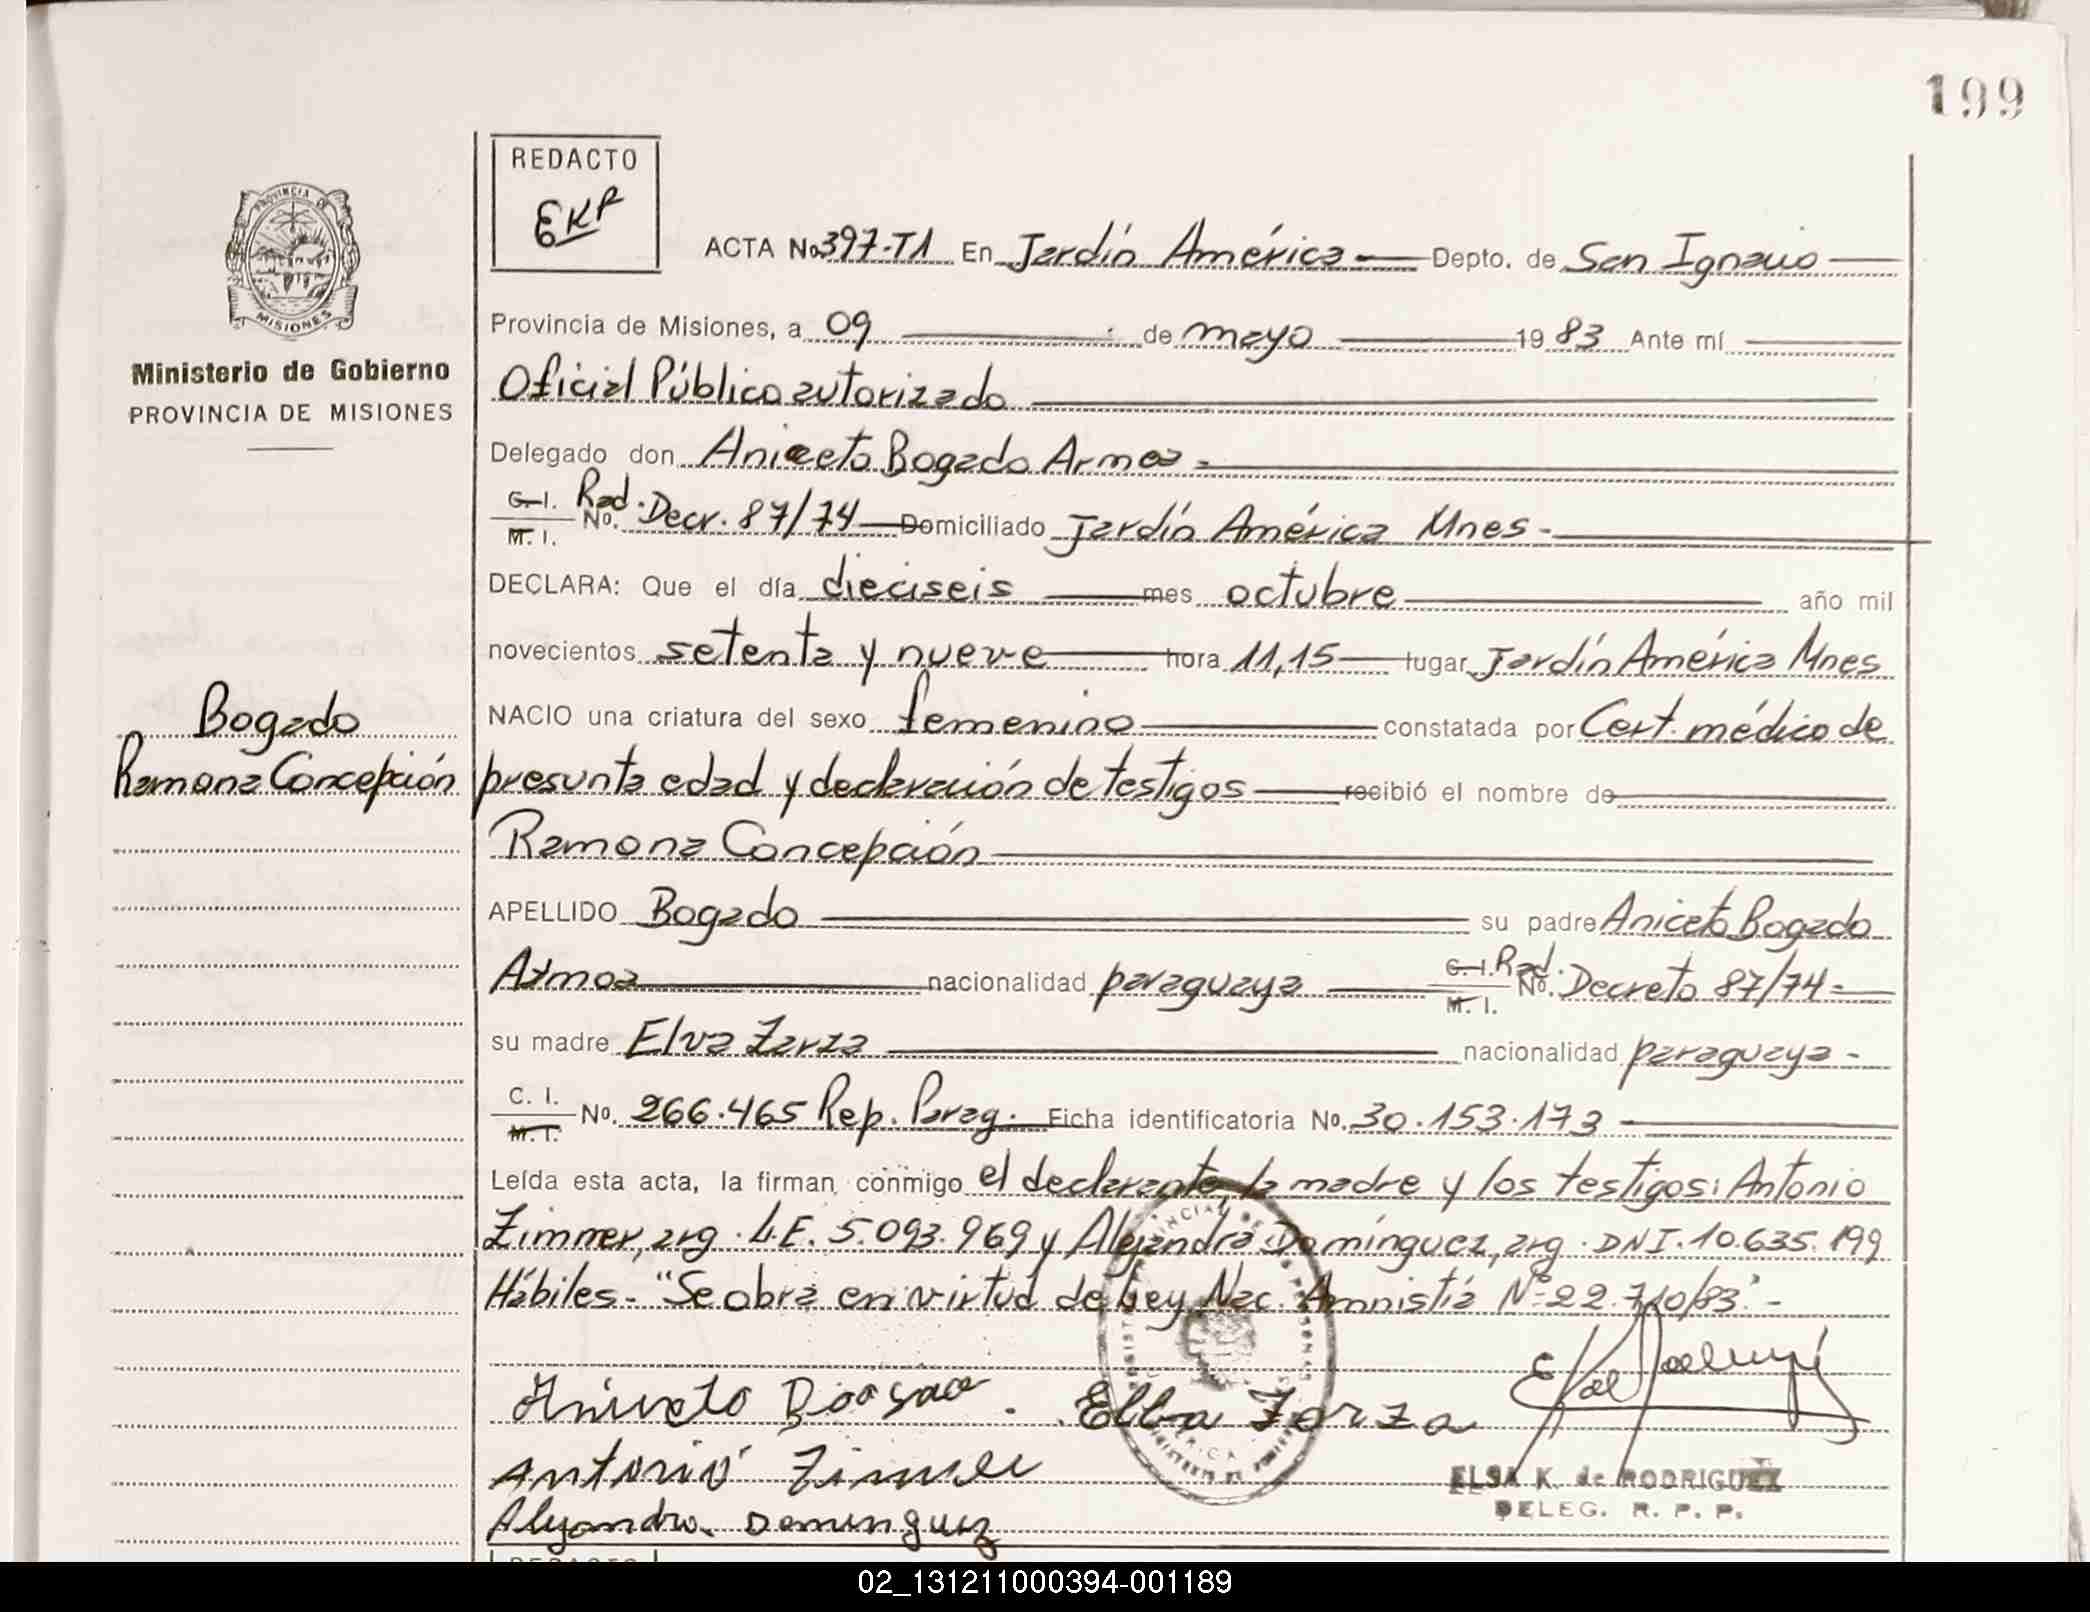 199
REDACTO
EKR
ACTA No 397-TA En Jardín América Depto. de San Ignacio
PROVINCIA
MISIONES
Provincia de Misiones, a 09 de mayo 1983 Ante mí
Ministerio de Gobierno
PROVINCIA DE MISIONES
Oficial Público autorizado
Delegado don Aniceto Bogado Armoa -
C. I. M. I. No. Rad. Decr. 87/74 Domiciliado Jardín América Mnes -
DECLARA: Que el día dieciseis mes octubre año mil
novecientos setenta y nueve hora 11,15 lugar Jardín América Mnes
Bogado
Ramona Concepción
NACIO una criatura del sexo femenino constatada por Cert. médico de
presunta edad y declaración de testigos recibió el nombre de
Ramona Concepción
APELLIDO Bogado su padre Aniceto Bogado
Armoa nacionalidad paraguaya C. I. M. I. No. Rad. Decreto 87/74 -
su madre Elva Zarza nacionalidad paraguaya -
C. I. M. I. No. 266.465 Rep. Parag. Ficha identificatoria No. 30.153.173
Leída esta acta, la firman conmigo el declarante, la madre y los testigos: Antonio
Zimmer, arg. L.E. 5.093.969 y Alejandro Domínguez, arg. DNI. 10.635.199
Hábiles - "Se obra en virtud de Ley Nac. Amnistía Nº 22.710/83" -
Aniceto Elba Zarza
Antonio Zimmer
ELSA K. de RODRIGUEZ
DELEG. R. P. P.
Alejandro Dominguez
REDACTO
02_131211000394-001189